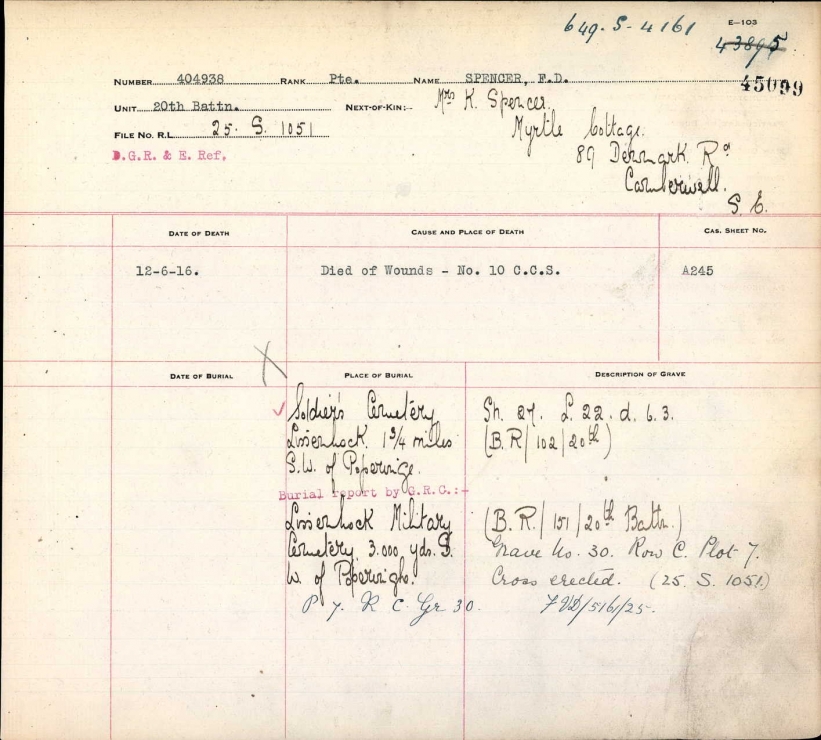 649-S-4161
E-103
43895
45099
NUMBER 404938 RANK Pte. NAME SPENCER, F.D.
UNIT 20th Battn. NEXT-OF-KIN:- Mrs K. Spencer.
Myrtle Cottage.
89 Denmark Rd
Camberwell.
S. E.
FILE No. R.L. 25. S. 1051
D.G.R. & E. Ref.
DATE OF DEATH CAUSE AND PLACE OF DEATH CAS. SHEET No.
12-6-16. Died of Wounds - No. 10 C.C.S. A245
DATE OF BURIAL PLACE OF BURIAL DESCRIPTION OF GRAVE
Soldier's Cemetery Sh. 27. L. 22. d. 6. 3.
Lissenhock. 1 3/4 miles (B.R/102/20th)
S.W. of Poperinge.
Burial report by G.R.C.:-
Lissenhock Military (B.R./151/20th Battn.)
Cemetery. 3.000 yds. S. Grave No. 30. Row C. Plot 7.
W. of Poperinghe. Cross erected. (25. S. 1051)
P 7. R C. Gr 30.